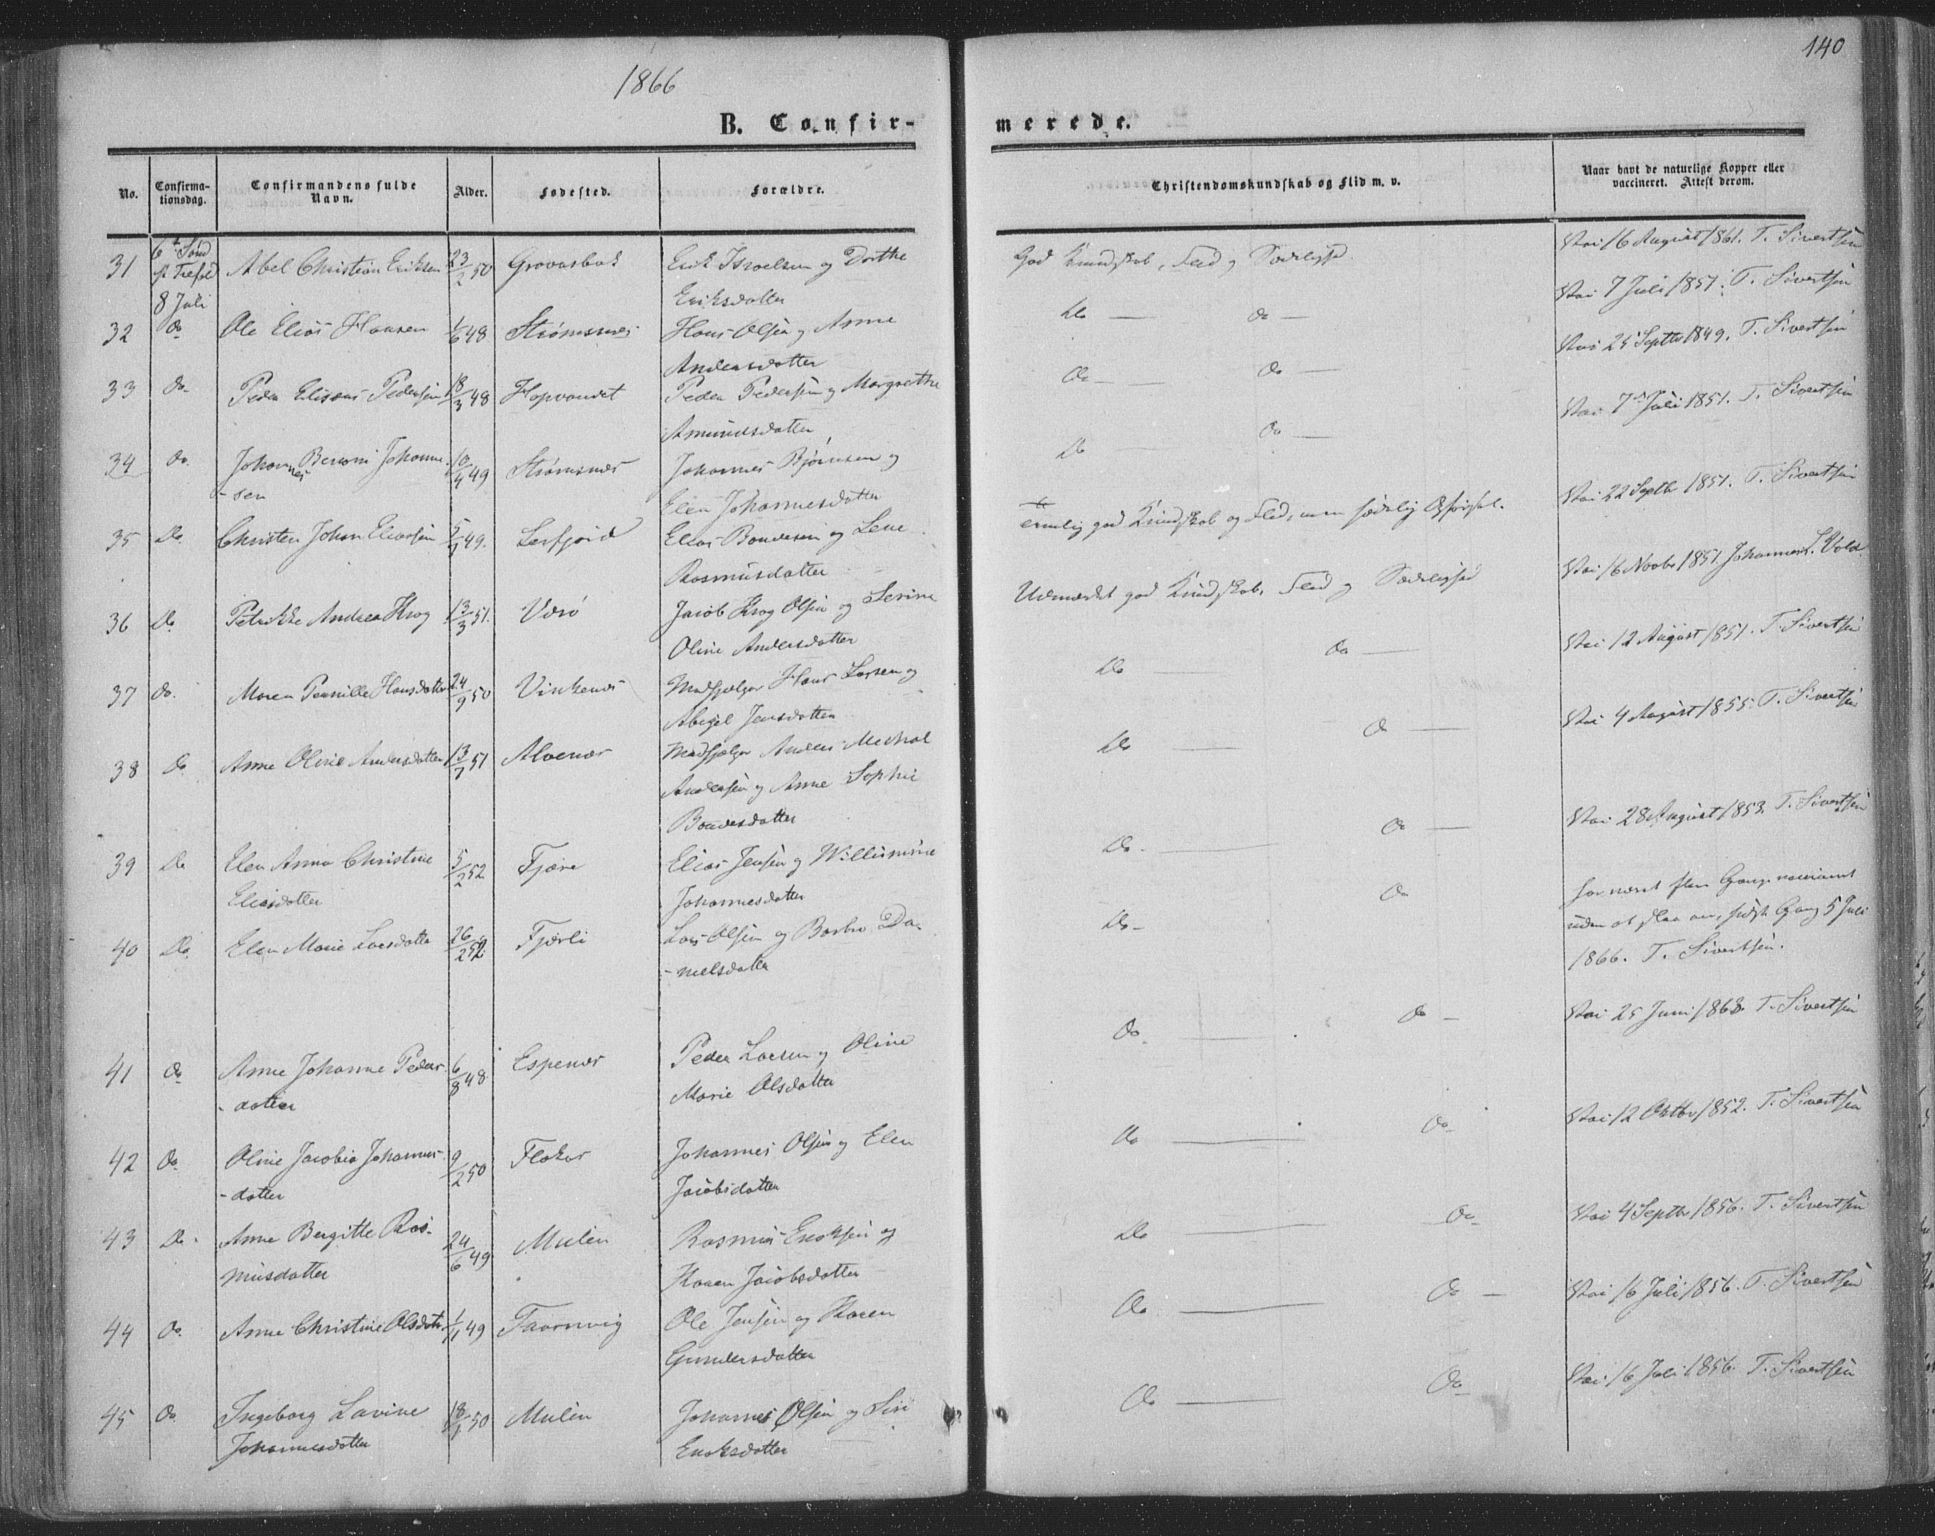 140
1866
B. Confir- merede.
No.
Confirma-
tionsdag.
Confirmandens fulde
Navn.
Alder.
Fødested.
Forældre.
Christendomskundskab og Flid m. v.
Naar havt de naturlige Kopper eller
vaccineret. Attest derom.
31 6te Sønd Abel Christian Eriksen 23/2 50 Erik Israelsen og Dorthe God Kundskab, Flid og Sædelighed. Vac 16 August 1861. T. Sivertsen
8 Juli Eriksdatter
32 Do Ole Elias Hansen 1/6 48 Strømsnes Hans Olsen og Anne Do — Do — Vac 7 Juli 1851. T. Sivertsen
Andersdatter
33 Do. Peder Pedersen 18/3 48 Hopvandet Peder Pedersen og Margrethe Do — Do — Vac 25 Septbr 1849. T. Sivertsen
Amundsdatter
34 Do. Johannes Benoni Johanne- 10/4 49 Strømsnes Johannes Bjørnsen og Do — Do — Vac 7 Juli 1851. T. Sivertsen
-sen Elen Johannesdatter
35 Do Christen Johan Eliassen 49. Lerfjord Elias Bondesen og Lene Temlig god Kundskab og Flid, men Opførsel. Vac 22 Septbr 1851. T. Sivertsen
Rasmusdatter
36 Do Petrikke Andrea Krog 13/3 51. Værø Jacob Krog Olsen og Serine Udmærket god Kundskab, Flid og Sædelighed Vac 16 Novbr 1851 Johannes S. Vold
Oline Andersdatter
37 Do. Maren Pernille Hansdatter 24/9 50 Vinkenes Hans Larsen og Do — Do — Vac 12 August 1851. T. Sivertsen
Abigel Jensdatter
38 Do Anne Oline Andersdatter 13/7 51 Alvenes Anders Do — Do — Vac 4 August 1855. T. Sivertsen
Andersen og Anne Sophie
Bondesdatter
39 Do Elen Anna Christine 5/2 52 Fjære Elias Jensen og Do — Do — Vac 28 August 1853. T. Sivertsen
Eliasdatter Johannesdatter
40 Do. Elen Marie Larsdatter 26/2 52 Fjærli Lars Olsen og Barbro Da- Do — Do har været flere Gange vaccineret
-nielsdatter uden at slaa an, sidste Gang 5 Juli
1866. T. Sivertsen.
41 Do Anne Johanne Peders- 6/8 48. Espenes Peder Larsen og Oline Do Do — Vac 25 Juni 1863. T. Sivertsen
-datter Marie Olsdatter
42 Do. Oline Jacobia Johannes- 9/2 50 Johannes Olsen og Elen Do — Do Vac 12 Oktbr 1852. T. Sivertsen
-datter Jacobsdatter
43 Do. Anne Bergitte Ras- 24/6 49 Mulen Rasmus Enoksen og Do — Do Vac 4 Septbr 1856. T. Sivertsen
musdatter Karen Jacobsdatter
44 Do. Anne Christine Olsdatter 1/1 49 Taarnvig Ole Jensen og Karen Do — Do — Vac 16 Juli 1856. T. Sivertsen
Gundersdatter
45 Do. Ingeborg Lavine 50 Mulen Johannes Olsen og Siri Do — Do Vac 16 Juli 1856. T. Sivertsen
Johannesdatter Enoksdatter